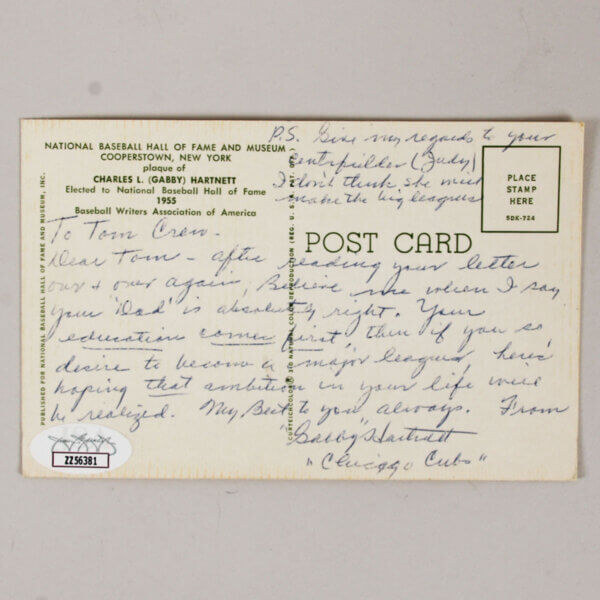 NATIONAL BASEBALL HALL OF FAME AND MUSEUM
COOPERSTOWN, NEW YORK
plaque of
CHARLES L. (GABBY) HARTNETT
Elected to National Baseball Hall of Fame
1955
Baseball Writers Association of America
P.S. Give my regards to your
Centrfielder (Judy)
I don't think she will
make the big leagues
PLACE
STAMP
HERE
5DK-724
POST CARD
To Tom Crew-
Dear Tom - after reading your letter
over + over again, Believe me when I say
your "Dad" is absolutely right. Your
education comes first, then if you so
desire to become a major leaguer, here's
hoping that ambition in your life will
be realized. My Best to you always. From
"Gabby" Hartnett
"Chicago Cubs"
PUBLISHED FOR NATIONAL BASEBALL HALL OF FAME AND MUSEUM, INC.
CURTEICHCOLOR® 3 D NATURAL COLOR REPRODUCTION (REG. U. S. A. PAT. OFF.)
JSA
ZZ56381